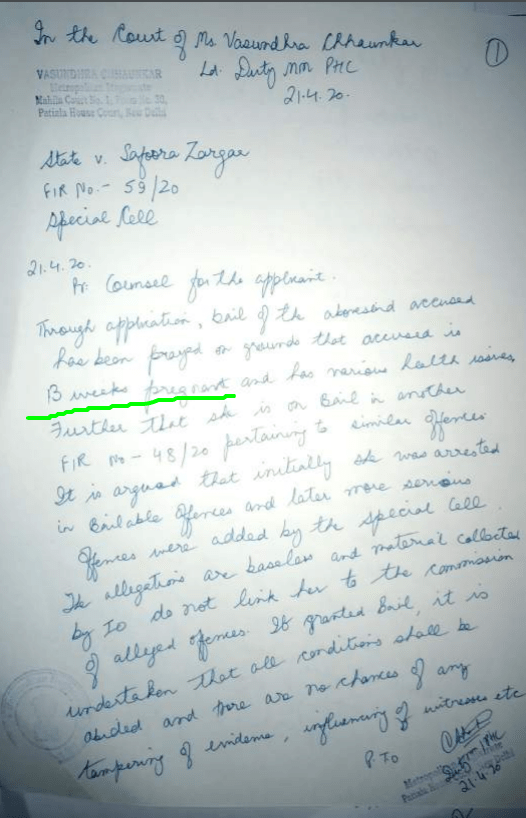 In the Court of Ms Vasundhra Chhaunkar
1
Ld. Duty MM PHC
21.4.20.
VASUNDHRA CHHAUNKAR
Metropolitan Magistrate
Mahila Court No.
Patiala House Court, New Delhi
State v. Safoora Zargar
FIR No. - 59/20
Special Cell
21.4.20.
Pr: Counsel for the applicant.
Through application, bail of the aforesaid accused
has been prayed on grounds that accused is
13 weeks pregnant and has various health issues.
Further that she is on Bail in another
FIR no - 48/20 pertaining to similar offences.
It is argued that initially she was arrested
in Bailable offences and later more serious
offences were added by the Special Cell.
The allegations are baseless and material collected
by IO do not link her to the commission
of alleged offences. If granted Bail, it is
undertaken that all conditions shall be
abided and there are no chances of any
tampering of evidence, influencing of witnesses etc
P.TO
Duty MM/PHC
Metropolitan Magistrate
21.4.20